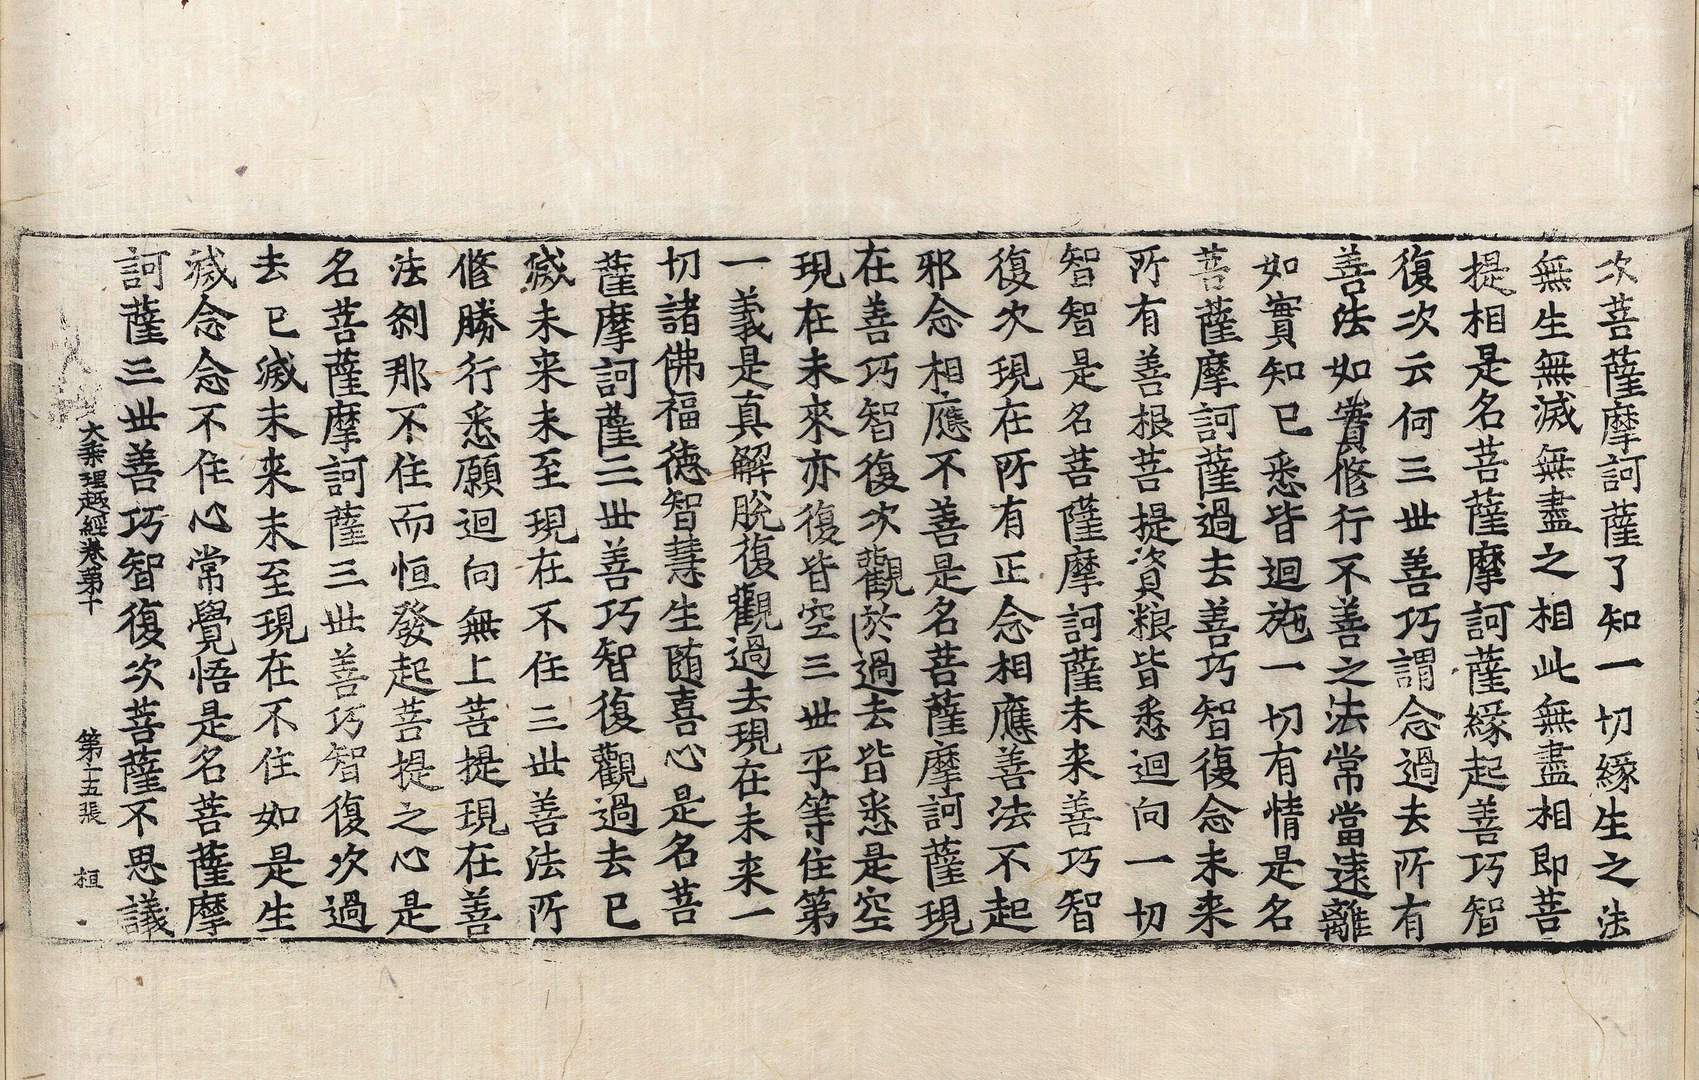 次菩薩摩訶薩了知一切緣生之法
無生無滅無盡之相此無盡相即菩
提相是名菩薩摩訶薩緣起善巧智
復次云何三世善巧謂念過去所有
善法如實修行不善之法常當遠離
如實知已悉皆迴施一切有情是名
菩薩摩訶薩過去善巧智復念未來
所有善根菩提資粮皆悉迴向一切
智智是名菩薩摩訶薩未来善巧智
復次現在所有正念相應善法不起
邪念相應不善是名菩薩摩訶薩現
在善巧智復次觀於過去皆悉是空
現在未來亦復皆空三世平等住第
一義是真解脫復觀過去現在未来一
切諸佛福德智慧生随喜心是名菩
薩摩訶薩三世善巧智復觀過去已
滅未来未至現在不住三世善法所
修勝行悉願迴向無上菩提現在善
法刹那不住而恒發起菩提之心是
名菩薩摩訶薩三世善巧智復次過
去已滅未来未至現在不住如是生
滅念念不住心常覺悟是名菩薩摩
訶薩三世善巧智復次菩薩不思議
大乘理趣經卷第十 第十五張 桓